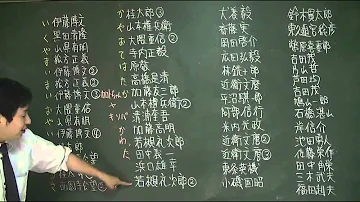 い 伊藤博文
く 黒田清隆
や 山県有朋
ま 松方正義
い 伊藤博文②
ま 松方正義②
い 伊藤博文③
お 大隈重信
や 山県有朋②
い 伊藤博文④
太郎
西園寺公望②
か 桂太郎③
や 山本権兵衛
お 大隈重信②
て 寺内正毅
は 原敬
た 高橋是清
か 加藤友三郎
や 山本権兵衛②
清浦奎吾
か 加藤高明
わ 若槻礼次郎
た 田中義一
浜口雄幸
若槻礼次郎②
犬養毅
斎藤実
岡田啓介
広田弘毅
林銑十郎
近衛文麿
平沼騏一郎
阿部信行
米内光政
近衛文麿②
近衛文麿③
東条英機
小磯国昭
鈴木貫太郎
東久邇宮稔彦
幣原喜重郎
吉田茂
片山哲
芦田均
吉田茂
鳩山一郎
石橋湛山
岸信介
池田勇人
佐藤栄作
田中角栄
三木武夫
福田赳夫